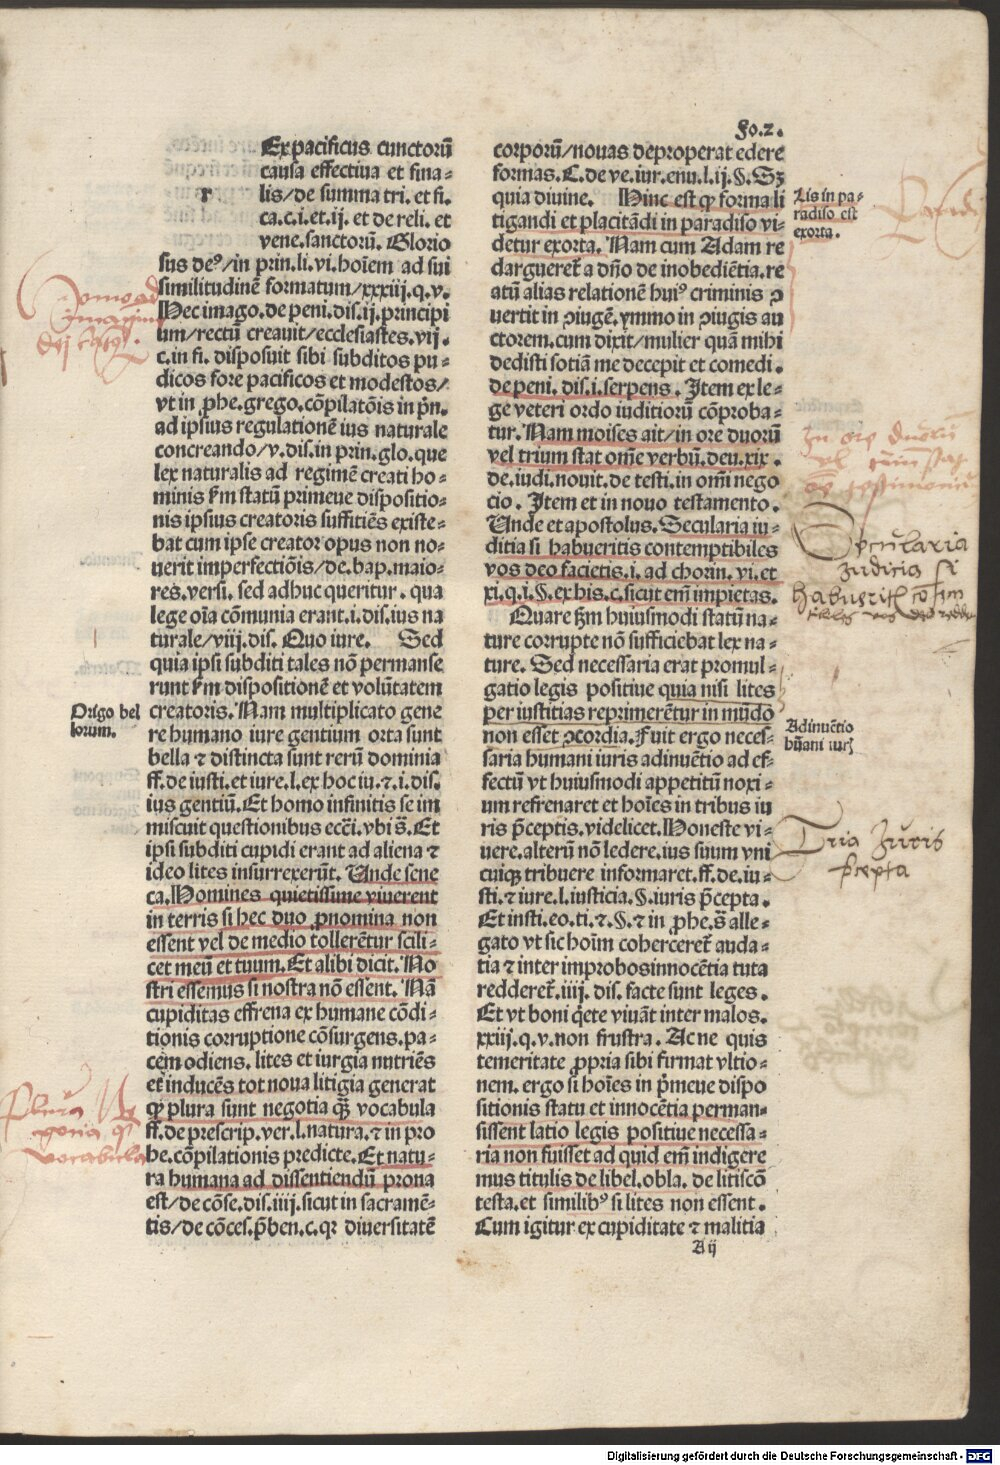 Fo.2.
r
Ex pacificus cunctorū
causa effectiua et fina⸗
lis/de summa tri. et fi.
ca.c.i.et.ij. et de reli. et
vene.sanctorū. Glorio
sus deꝰ/in prin.li.vi.hoīem ad sui
similitudinē formatum/xxxiij.q.v.
Hec imago.de peni.dis.ij.principi
um/rectū creauit/ecclesiastes.vij.
c.in fi. disposuit sibi subditos pu⸗
dicos fore pacificos et modestos/
vt in ꝓhe.grego.cōpilatōis in pn̄.
ad ipsius regulationē ius naturale
concreando/v.dis.in prin.glo.que
lex naturalis ad regimē creati ho⸗
minis ẜm statū primeue dispositio⸗
nis ipsius creatoris suffitiēs existe⸗
bat cum ipse creator opus non no⸗
uerit imperfectiōis/de.bap.maio⸗
res.versi. sed adhuc queritur. qua
lege oīa cōmunia erant.i.dis.ius na
turale/viij.dis. Quo iure. Sed
quia ipsi subditi tales nō permanse
runt ẜm dispositionē et volūtatem
creatoris. Nam multiplicato gene
re humano iure gentium orta sunt
bella ⁊ distincta sunt rerū dominia
ff.de iusti.et iure.l.ex hoc iu.⁊.i.dis.
ius gentiū. Et homo infinitis se im
miscuit questionibus ecc̄i.vbi s̄. Et
ipsi subditi cupidi erant ad aliena ⁊
ideo lites insurrexerūt. Unde sene
ca. Homines quietissime viuerent
in terris si hec duo ꝓnomina non
essent vel de medio tollerētur scili⸗
cet meū et tuum. Et alibi dicit. No
stri essemus si nostra nō essent. Nā
cupiditas effrena ex humane cōdi⸗
tionis corruptione cōsurgens.pa⸗
cem odiens. lites et iurgia nutriēs
et inducēs tot noua litigia generat
ꝙ plura sunt negotia q̄ꝫ vocabula
ff.de prescrip.ver.l.natura.⁊ in pro
he.cōpilationis predicte. Et natu⸗
ra humana ad dissentiendū prona
est/de cōse.dis.iiij.sicut in sacramē⸗
tis/de cōces.p̄ben.c.qꝛ diuersitatē
Origo bel
lorum.
Plura Ne
gocia q̄
vocabula
corporū/nouas deproperat edere
formas.C.de ve.iur.enu.l.ij.§. Sꝫ
quia diuine. Hinc est ꝙ forma li
tigandi et placitādi in paradiso vi⸗
detur exorta. Nam cum Adam re
dargueret᷑ a dño de inobediētia.re
atū alias relationē huiꝰ criminis ꝯ
uertit in ꝯiugē.ymmo in ꝯiugis au
ctorem.cum dixit/mulier quā mihi
dedisti sotiā me decepit et comedi.
de peni. dis.i.serpens. Item ex le⸗
ge veteri ordo iuditiorū cōproba⸗
tur. Nam moises ait/in ore duorū
vel trium stat om̄e verbū.deu.xix.
de.iudi.nouit.de testi.in omī nego
cio. Item et in nouo testamento.
Unde et apostolus. Secularia iu⸗
ditia si habueritis contemptibiles
vos deo facietis.i. ad chorin. vi.et
xi.q.i.§.ex his.c.sicut em̄ impietas.
Quare ẜm huiusmodi statū na⸗
ture corrupte nō sufficiebat lex na⸗
ture. Sed necessaria erat promul⸗
gatio legis positiue quia nisi lites
per iustitias reprimerētur in mūdo
non esset ꝯcordia. Fuit ergo neces⸗
saria humani iuris adinuētio ad ef⸗
fectū vt huiusmodi appetitū noxi⸗
um refrenaret et hoīes in tribus iu
ris p̄ceptis.videlicet. Honeste vi⸗
uere.alterū nō ledere.ius suum vni
cuiqꝫ tribuere informaret.ff.de.iu⸗
sti.⁊ iure.l.iusticia.§.iuris p̄cepta.
Et insti.eo.ti.⁊.§.⁊ in ꝓhe.s̄ alle⸗
gato vt sic hoīm coherceret᷑ auda⸗
tia ⁊ inter improbos innocētia tuta
redderet᷑.iiij. dis. facte sunt leges.
Et vt boni q̇ete viuāt inter malos.
xxiij.q.v.non frustra. Ac ne quis
temeritate ꝓpria sibi firmat vltio⸗
nem. ergo si hoīes in p̄meue dispo
sitionis statu et innocētia perman⸗
sissent latio legis positiue necessa⸗
ria non fuisset ad quid em̄ indigere
mus titulis de libel.obla. de litiscō
testa.et similibꝰ si lites non essent.
Cum igitur ex cupiditate ⁊ malitia
Aij
Lis in pa⸗
radiso est
exorta.
In ore duorū
vel
testimoniū
Secularia
Iudicia si
habuerit
Adinuētio
hūani iurꝭ
Tria Iuris
precepta
Digitalisierung gefördert durch die Deutsche Forschungsgemeinschaft - DFG